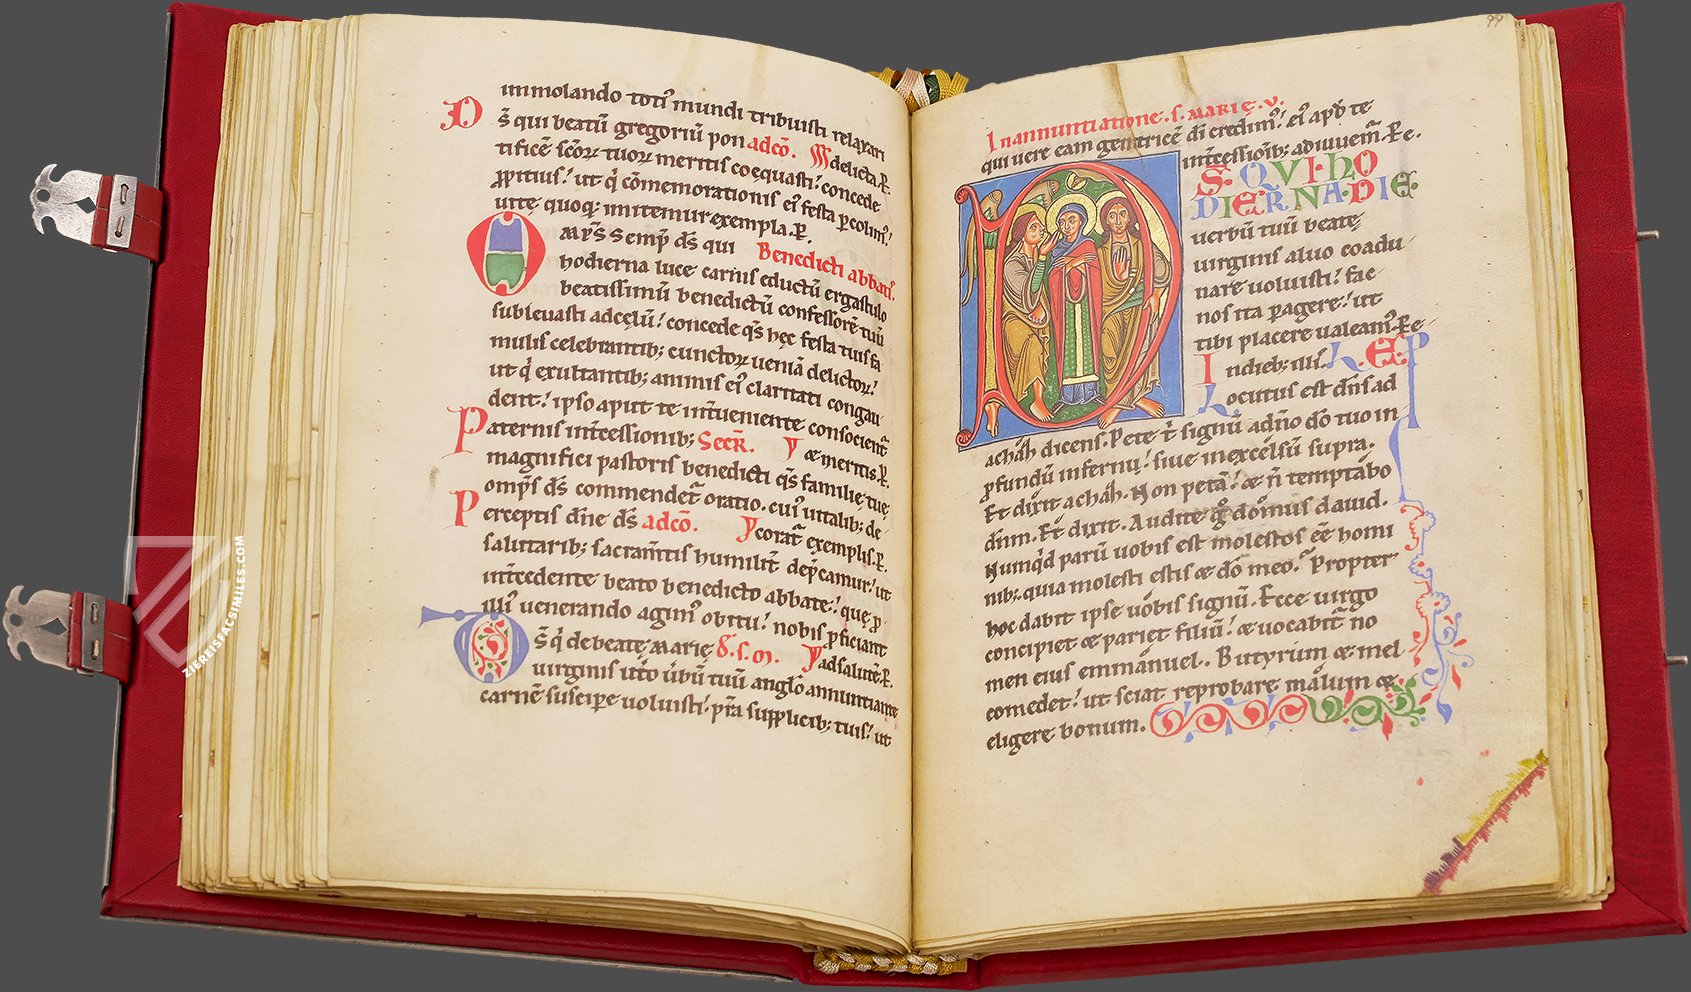 immolando toti᷒ mundi tribuisti relaxari
D s̄ qui beatū gregoriū pon adcō. delicta. P.
tificē scōꝝ tuoꝝ meritis coequasti: concede
ꝓpitius: ut q̄ cōmemorationis ei᷒ festa ꝑcolim᷒:
uite quoq; imitemur exempla. P.
O mp̄s semp̄ ds̄ qui Benedicti abbatis.
hodierna luce carnis eductū ergastulo
beatissimū benedictū confessorē tuū
subleuasti ad cęlū: concede qs̄ hęc festa tuis fa
mulis celebrantib; cunctoꝝ ueniā delictoꝝ:
ut q̄ exultantib; animis ei᷒ claritati congau
dent: ipso aput te int̄ueniente consocient̄
P aternis int̄cessionib; Secr̄. & meritis. P.
magnifici pastoris benedicti qs̄ familię tuę
omp̄s ds̄ commendet̄ oratio. cui᷒ uitalib; de
P erceptis dn̄e ds̄ adcō. corat̄ exemplis. P.
salutarib; sacram̄tis humilit̄ dep̄camur: ut
int̄cedente beato benedicto abbate: quę ꝓ
illi᷒ uenerando agim᷒ obitu: nobis ꝓficiant
D s̄ q̄ de beatę marię ad salutē. P.
uirginis utō ūbū tuū anglō annuntiante
carnē suscipe uoluisti: p̄ra supplicib; tuis: ut
99
In annuntiatione. s. marię. v.
qui uere eam genitricē di̅ credim᷒: ei᷒ apđ te
int̄cessioīb; adiuuem̄. P. e.
D S. QVI HO
DIERNA DIE
uerbū tuū beatę
uirginis aluo coadu
nare uoluisti: fac
nos ita ꝑagere: ut
tibi placere ualeam᷒. P. e
I n dieb; illi᷒:
L ocutus est dn̄s ad
achāh dicens. Pete t̄ signū a dn̄o dō tuo in
ꝓfundū inferni: siue in excelsū supra.
Et dixit achāh. Non petā: & n̄ temptabo
dn̄m. Et dixit. Audite ḡ domus dauid.
Numq̄d parū uobis est molestos eē homi
nib; quia molesti estis & dō meo: Propter
hoc dabit ipse uobis signū. Ecce uirgo
concipiet & pariet filiū: & uocabit̄ no
men eius emmanuel. Butyrum & mel
comedet: ut sciat reprobare malum &
eligere bonum.
ZIEREISFACSIMILES.COM